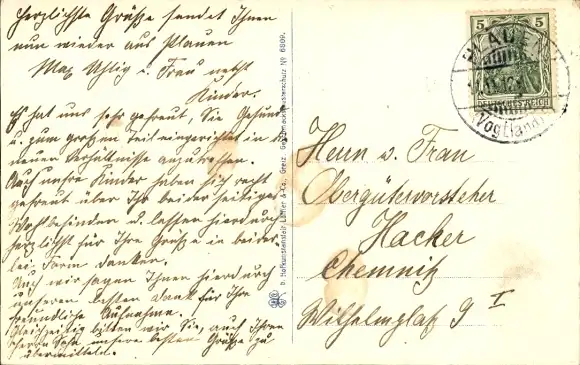 Herzlichste Grüße sendet Ihnen
nun wieder aus Plauen
Max Uhlig u. Frau nebst
Kinder.
Es hat uns sehr gefreut, Sie gesund
u. zum großen Teil eingerichtet in
neuen Verhältnisse anzutreffen.
Auch unsre Kinder haben sich recht
gefreut über Ihr beiderseitiges
Wohlbefinden u. lassen hierdurch
herzlichst für Ihre Grüße in beider-
lei Form danken.
Auch wir sagen Ihnen hierdurch
unseren besten Dank für Ihre
freundliche Aufnahme.
Gleichzeitig bitten wir Sie, auch Ihren
Herrn Sohn unsere besten Grüße zu
übermitteln.
D. Hofkunstanstalt Löffler & Co., Greiz. Geschmacksmusterschutz No 6809.
5 5
DEUTSCHES REICH
PLAUEN
(Vogtland)
Herrn u. Frau
Obergütervorsteher
Hacker
Chemnitz
Wilhelmplatz 9 I